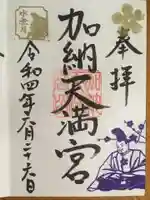 奉拝
加納天満宮
令和四年六月二十六日
水無月